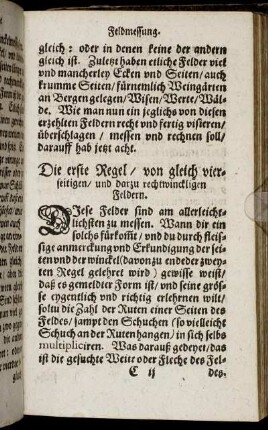 Feldmessung.
gleich: oder in denen keine der andern
gleich ist. Zuletzt haben etliche Felder viel
und mancherley Ecken und Seiten/ auch
krumme Seiten/ fürnemlich Weingärten
an Bergen gelegen/ Wisen/ Werte/ Wäl-
de. Wie man nun ein jeglichs von diesen
erzehlten Feldern recht und fertig visieren/
überschlagen/ messen und rechnen soll/
darauff hab jetzt acht.
Die erste Regel/ von gleich vier-
seitigen/ und darzu rechtwinckligen
Feldern.
DIese Felder sind am allerleicht-
lichsten zu messen. Wann dir ein
solchs fürkomt/ und du durch fleis-
sige anmerckung vnd Erkundigung der sei-
ten und der winckel (davon zu end der zwey-
ten Regel gelehret wird) gewisse weist/
daß es gemeldter Form ist/ und seine grös-
se eygentlich und richtig erlehrnen wilt/
soltu die Zahl der Ruten einer Seiten des
Feldes/ sampt den Schuchen (so vielleicht
Schuch an der Ruten hangen/ in sich selbs
multipliciren. Was darauß gedeyet/ das
ist die gesuchte Weite oder Fleche des Fel-
C ij
des.